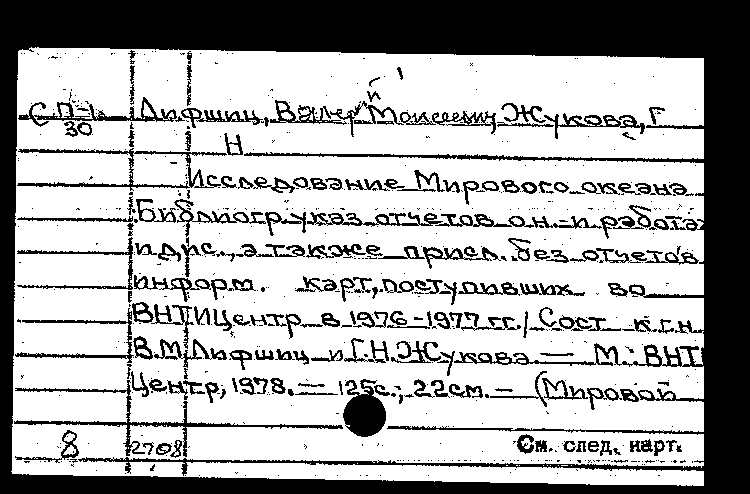 С.П-1 Лифшиц, Валерий Моисеевич, Жукова, Г
30
Н
Исследование Мирового океана
Библиогр. указ. отчетов о н.-и работах
и дис., а также присл. без отчетов
информ. карт, поступивших во
ВНТИЦентр в 1976-1977 гг. / Сост к.г.н
В.М. Лифшиц и Г.Н. Жукова — М.: ВНТИ
Центр, 1978. — 125с.; 22см. — (Мировой
8 2708 См. след. карт.